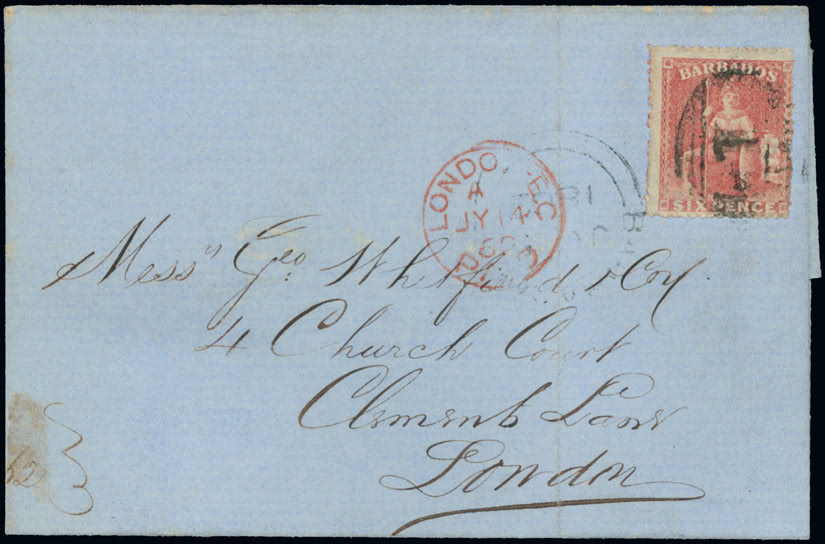 BARBADOS
SIX PENCE
1
LONDON E.C
A
JY 14
PAID
Mess^rs Geo Whitfield & Co^y
4 Church Court
Clements Lane
London